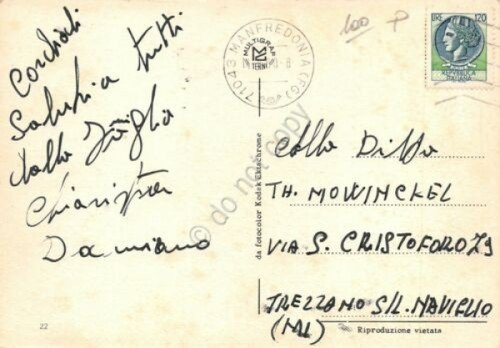 Cordiali
Saluti a tutti
dalla Puglia
Damiano
22
da fotocolor Kodak Ektachrome
71043 MANFREDONIA (FG)
MULTIGRAF
TERNI
100
LIRE 120
REPUBBLICA
ITALIANA
© do not copy
Alla Ditta
TH. MOWINCKEL
VIA S. CRISTOFORO 79
TREZZANO S/L. NAVIGLIO
(MI)
Riproduzione vietata